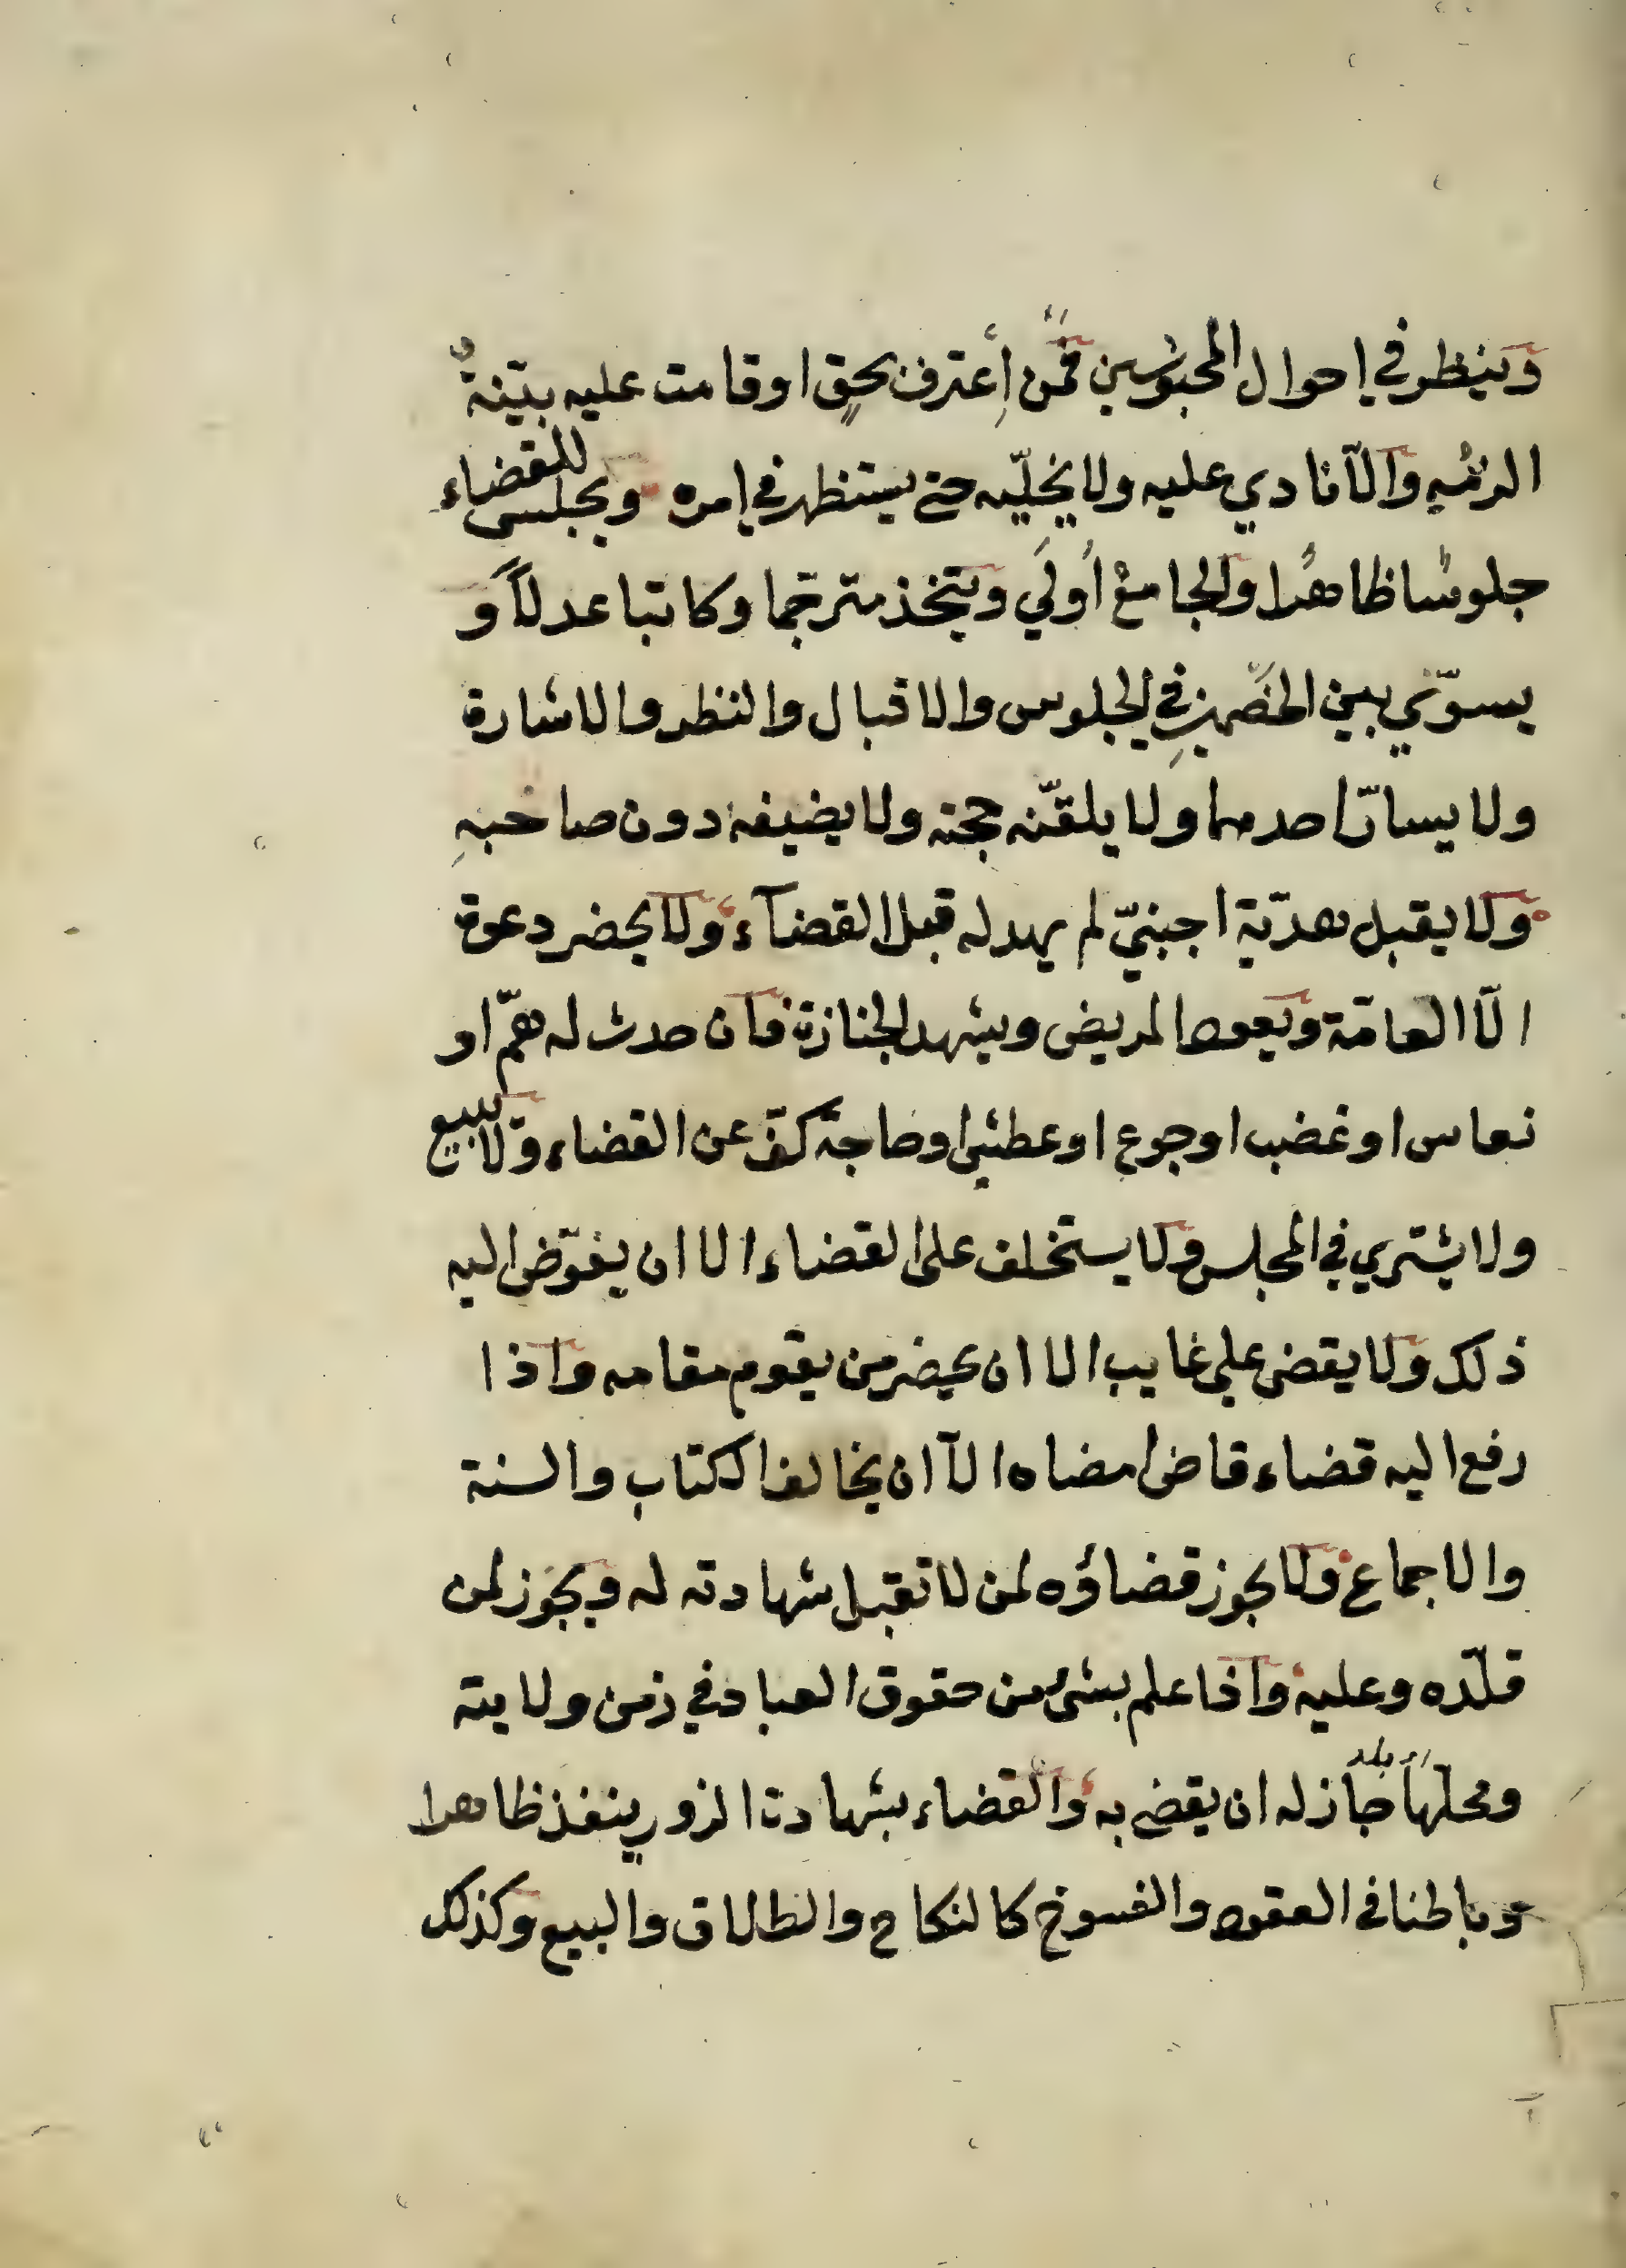 وينظر في احوال المحبوسين فمن إعترف بحق او قامت عليه بيّنةٌ
الزمه والّا نادي عليه ولا يخلّيه حتي يستظهر في امره ويجلس للقضاء
جلوسا ظاهرا والجامع أولي ويتخذ مترجما وكاتبا عدلاً و
يسوّي بين الخصمين في الجلوس والاقبال والنظر والاشارة
ولا يسارّ احدهما ولا يلقّنه حجته ولا يضيفه دون صاحبهِ
ولا يقبل هديّة اجنبيّ لم يهد له قبل القضآء ولا يحضر دعوة
الّا العامّة ويعود المريض ويشهد الجنازة فان حدث له همّ او
نعاس او غضب او جوع او عطش او حاجة كفّ عن القضاء ولا يبيع
ولا يشتري في المجلس ولا يستخلف علي القضاء الا ان يفوّض اليه
ذلك ولا يقضي علي غايب الا ان يحضر من يقوم مقامه واذا
رفع اليه قضاء قاض امضاه الّا ان يخالف الكتاب والسنة
والاجماع ولا يجوز قضاؤه لمن لا تقبل شهادته له ويجوز لمن
قلّده وعليه واذا علم بشئ من حقوق العباد في زمن ولايته
ومحلّها جاز له ان يقضي به والقضاء بشهادة الزور ينفذ ظاهرا
وباطنا في العقود والفسوخ كالنكاح والطلاق والبيع وكذلك